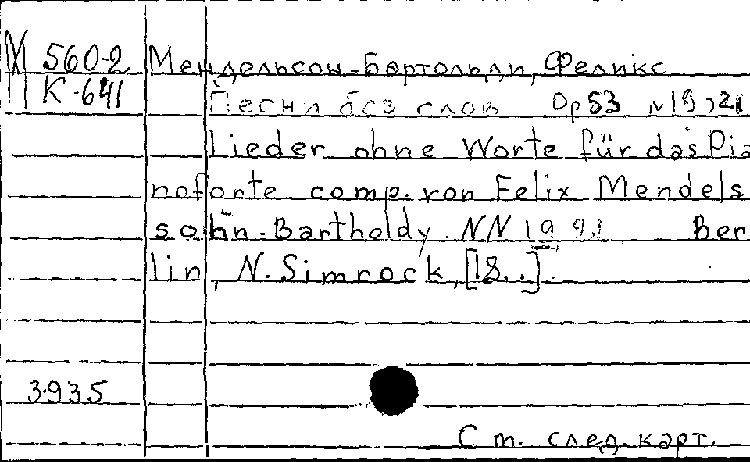 М 560-2 Мендельсон-Бартольди, Феликс
К-641 Песни без слов Op 53 N 19, 21
Lieder ohne Worte für das Pia
noforte comp. von Felix Mendels
sohn-Bartholdy. NN 19 Ber
lin, N. Simrock, [18..].
3935
См. след. карт.